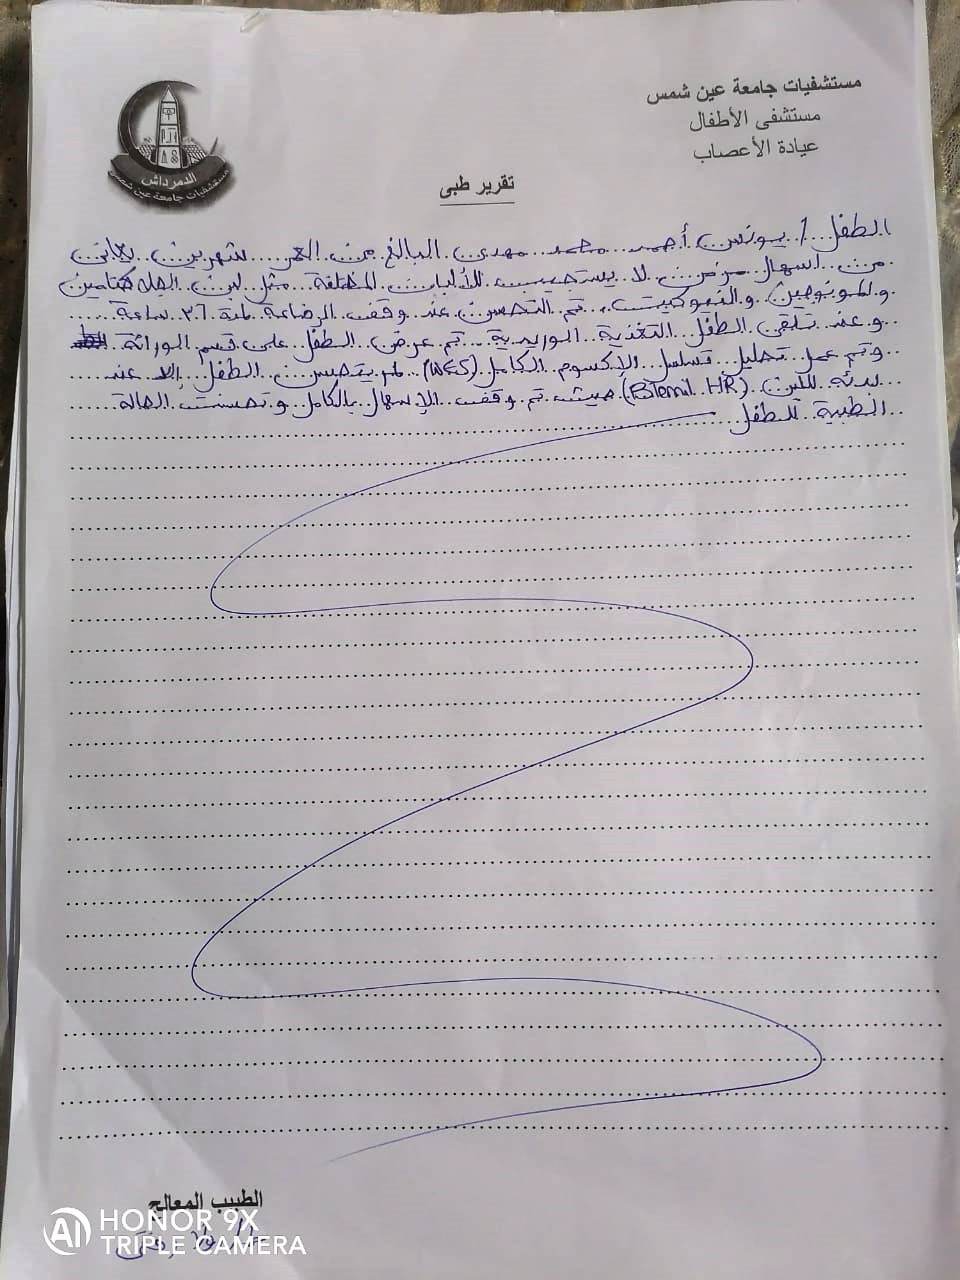 مستشفيات جامعة عين شمس
مستشفى الأطفال
عيادة الأعصاب
الدمرداش
مستشفيات جامعة عين شمس
تقرير طبى
الطفل / يونس أحمد محمد مهدى البالغ من العمر شهرين يعانى
من اسهال مزمن لا يستجيب للألبان المختلفة مثل لبن
والنيوكيت تم التحسن عند وقف الرضاعة لمدة ٣٦ ساعة
و عند تلقى الطفل التغذية الوريدية تم عرض الطفل على قسم الوراثة
وتم عمل تحليل تسلسل الإكسوم الكامل (WES) لم يتحسن الطفل إلا عند
بدئه للبن (BTemil HR) حيث تم وقف الإسهال بالكامل و تحسنت الحالة
الطبية للطفل
الطبيب المعالج
HONOR 9X
TRIPLE CAMERA